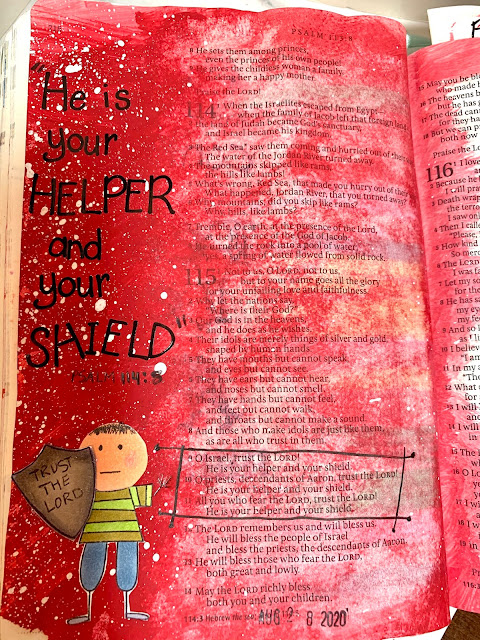 PSALM 113:8
8 He sets them among princes,
even the princes of his own people!
9 He gives the childless woman a family,
making her a happy mother.
the LORD!
When the Israelites escaped from Egypt—
when the family of Jacob left that foreign land—
land of Judah became God's sanctuary,
and Israel became his kingdom.
3 The Red Sea* saw them coming and hurried out of their
The water of the Jordan River turned away.
4 The mountains skipped like rams,
the hills like lambs!
5 What's wrong, Red Sea, that made you hurry out of their
What happened, Jordan River, that you turned away?
6 Why, mountains, did you skip like rams?
Why, hills, like lambs?
7 Tremble, O earth, at the presence of the Lord,
at the presence of the God of Jacob.
8 He turned the rock into a pool of water;
a spring of water flowed from solid rock.
115 Not to us, O LORD, not to us,
but to your name goes all the glory
for your unfailing love and faithfulness.
2 Why let the nations say,
"Where is their God?"
3 Our God is in the heavens,
and he does as he wishes.
4 Their idols are merely things of silver and gold,
shaped by human hands.
5 They have mouths but cannot speak,
and eyes but cannot see.
6 They have ears but cannot hear,
and noses but cannot smell.
7 They have hands but cannot feel,
and feet but cannot walk,
and throats but cannot make a sound.
8 And those who make idols are just like them,
as are all who trust in them.
9 O Israel, trust the LORD!
He is your helper and your shield.
10 O priests, descendants of Aaron, trust the LORD!
He is your helper and your shield.
11 All you who fear the LORD, trust the LORD!
He is your helper and your shield.
12 The LORD remembers us and will bless us.
He will bless the people of Israel
and bless the priests, the descendants of Aaron.
13 He will bless those who fear the LORD,
both great and lowly.
14 May the LORD richly bless
both you and your children.
114:3 Hebrew the
AUG 2 8 2020
"He is
your
HELPER
and
your
SHIELD"
PSALM 114:9
TRUST
THE
LORD
15 May you be
who made
16 The heavens
but he has
17 The dead
for they
18 But we can
both now
Praise the
116 I love
and
2 Because he
I will
3 Death
the
I saw
4 Then I
"Please
5 How kind
So
6 The LORD
I was
7 Let my
for the
8 He has
my
my
9 And so I
as I
10 I believe
"I am
11 In my
"The
12 What
for
13 I will
and
14 I will
in
15 The
116:3